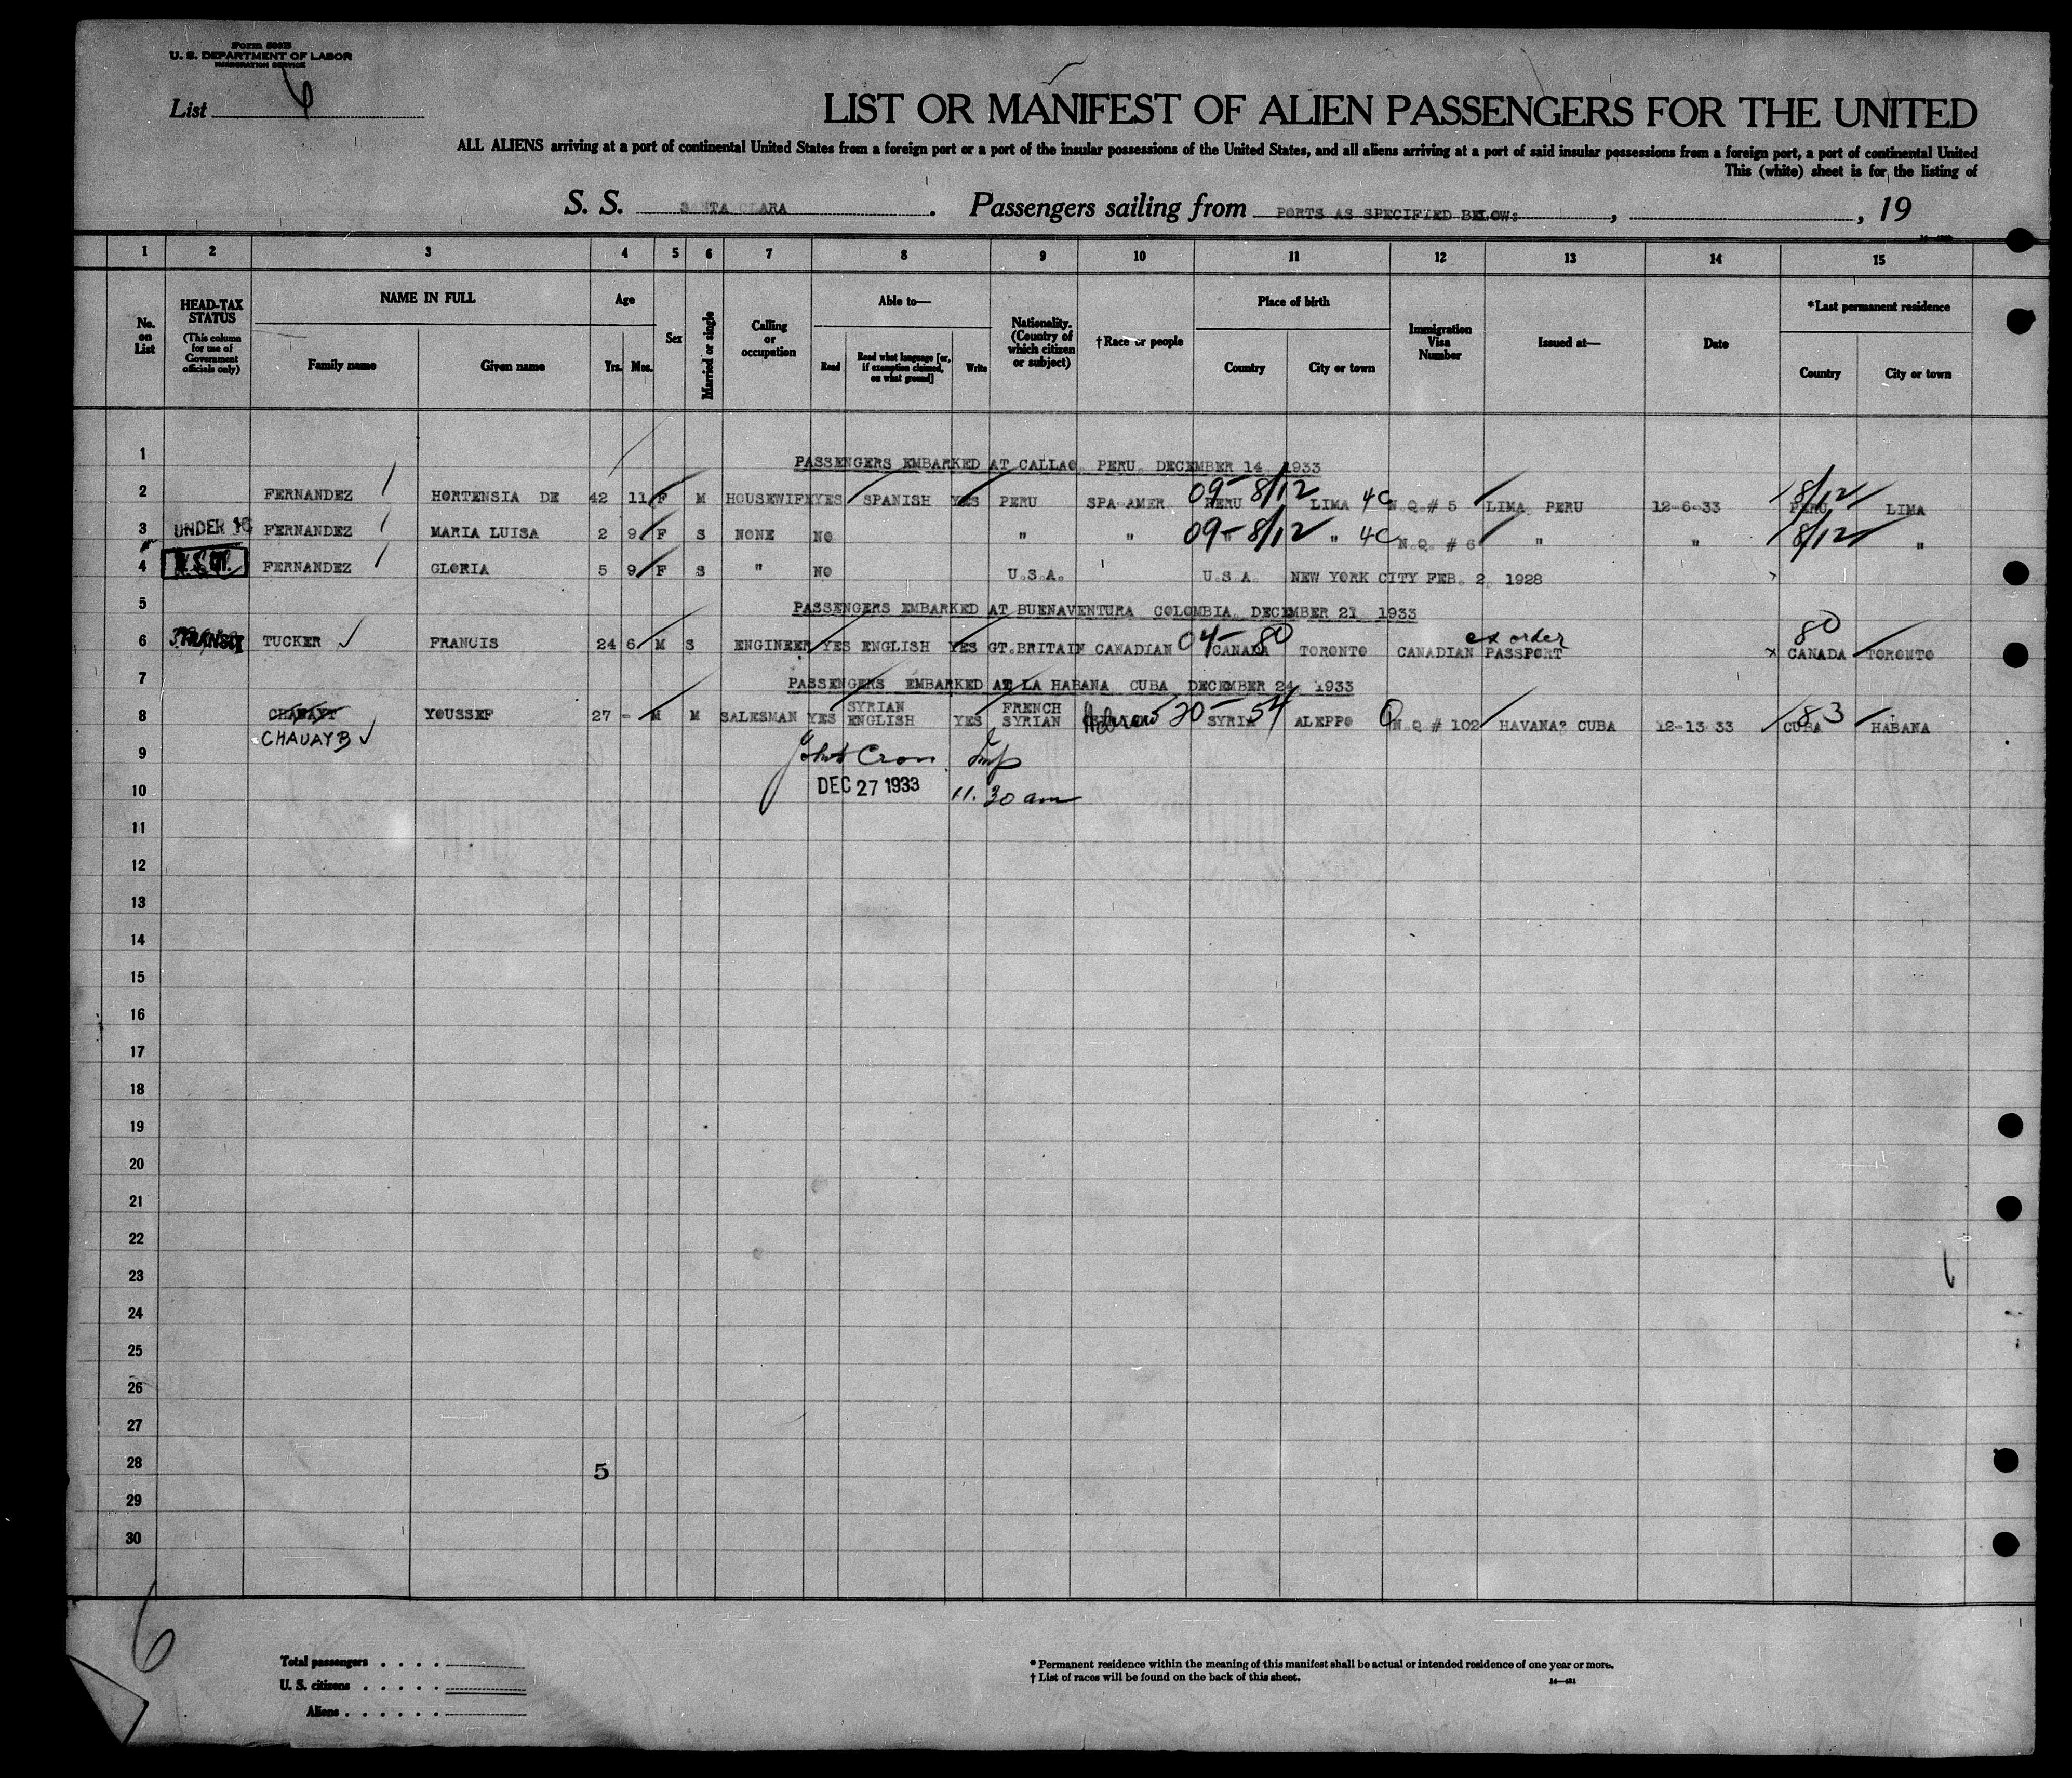 Form 500B
U. S. DEPARTMENT OF LABOR
IMMIGRATION SERVICE
List 6
LIST OR MANIFEST OF ALIEN PASSENGERS FOR THE UNITED
ALL ALIENS arriving at a port of continental United States from a foreign port or a port of the insular possessions of the United States, and all aliens arriving at a port of said insular possessions from a foreign port, a port of continental United
This (white) sheet is for the listing of
S. S. SANTA CLARA. Passengers sailing from PORTS AS SPECIFIED BELOW:, , 19
1 2 3 4 5 6 7 8 9 10 11 12 13 14 15
No. on List
HEAD-TAX STATUS
(This column for use of Government officials only)
NAME IN FULL
Family name Given name
Age
Yrs. Mos.
Sex
Married or single
Calling or occupation
Able to—
Read Read what language [or, if exemption claimed, on what ground] Write
Nationality. (Country of which citizen or subject)
†Race or people
Place of birth
Country City or town
Immigration Visa Number
Issued at—
Date
*Last permanent residence
Country City or town
1 PASSENGERS EMBARKED AT CALLAO, PERU. DECEMBER 14, 1933
2 FERNANDEZ HORTENSIA DE 42 11 F M HOUSEWIFE YES SPANISH YES PERU SPA-AMER. 09- 8/12 PERU LIMA 4C N.Q.# 5 LIMA, PERU 12-6-33 8/12 PERU LIMA
3 UNDER 16 FERNANDEZ MARIA LUISA 2 9 F S NONE NO " " 09- 8/12 " " 4C N.Q. # 6 " " 8/12 "
4 FERNANDEZ GLORIA 5 9 F S " NO U.S.A. U.S.A. NEW YORK CITY FEB. 2, 1928
5 PASSENGERS EMBARKED AT BUENAVENTURA COLOMBIA. DECEMBER 21 1933
6 TRANSIT TUCKER FRANCIS 24 6 M S ENGINEER YES ENGLISH YES GT.BRITAIN CANADIAN 04- 80 CANADA TORONTO CANADIAN PASSPORT ex order 80 x CANADA TORONTO
7 PASSENGERS EMBARKED AT LA HABANA CUBA DECEMBER 24, 1933
8 CHAWAYT YOUSSEF 27 - M M SALESMAN YES SYRIAN ENGLISH YES FRENCH SYRIAN Hebrew 20- 54 SYRIA ALEPPO Q N.Q # 102 HAVANA? CUBA 12-13-33 83 CUBA HABANA
CHAUAYB
9 John Cron Insp
10 DEC 27 1933 11.30 am
11
12
13
14
15
16
17
18
19
20
21
22
23
24
25
26
27
28 5
29
30
6
Total passengers . . . .
U. S. citizens . . . . .
Aliens . . . . . .
* Permanent residence within the meaning of this manifest shall be actual or intended residence of one year or more.
† List of races will be found on the back of this sheet.